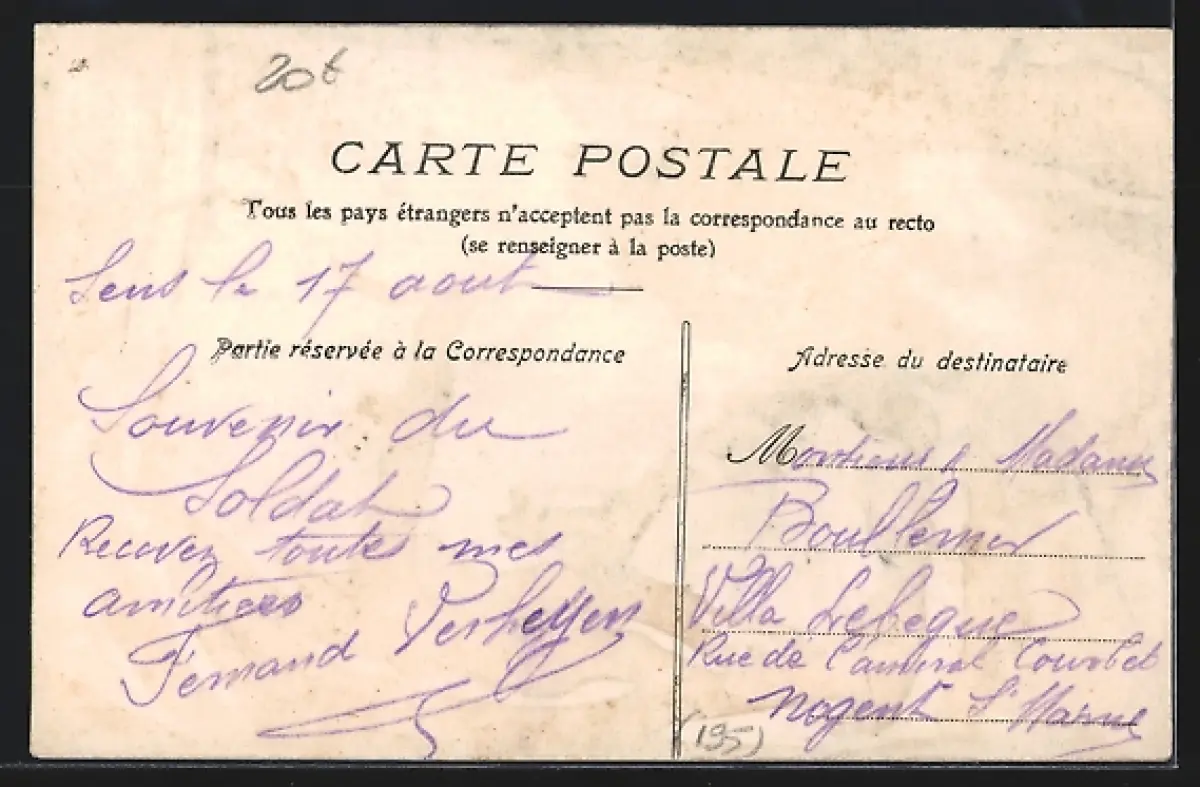 20f
CARTE POSTALE
Tous les pays étrangers n'acceptent pas la correspondance au recto
(se renseigner à la poste)
Sens le 17 aout
Partie réservée à la Correspondance
Souvenir du
Soldat
Recevez toutes mes
amitiees
Fernand Verheyen
Adresse du destinataire
Monsieur & Madame
Villa Lebegue
Rue de l'amiral Courbet
Nogent S/ Marne
(195)